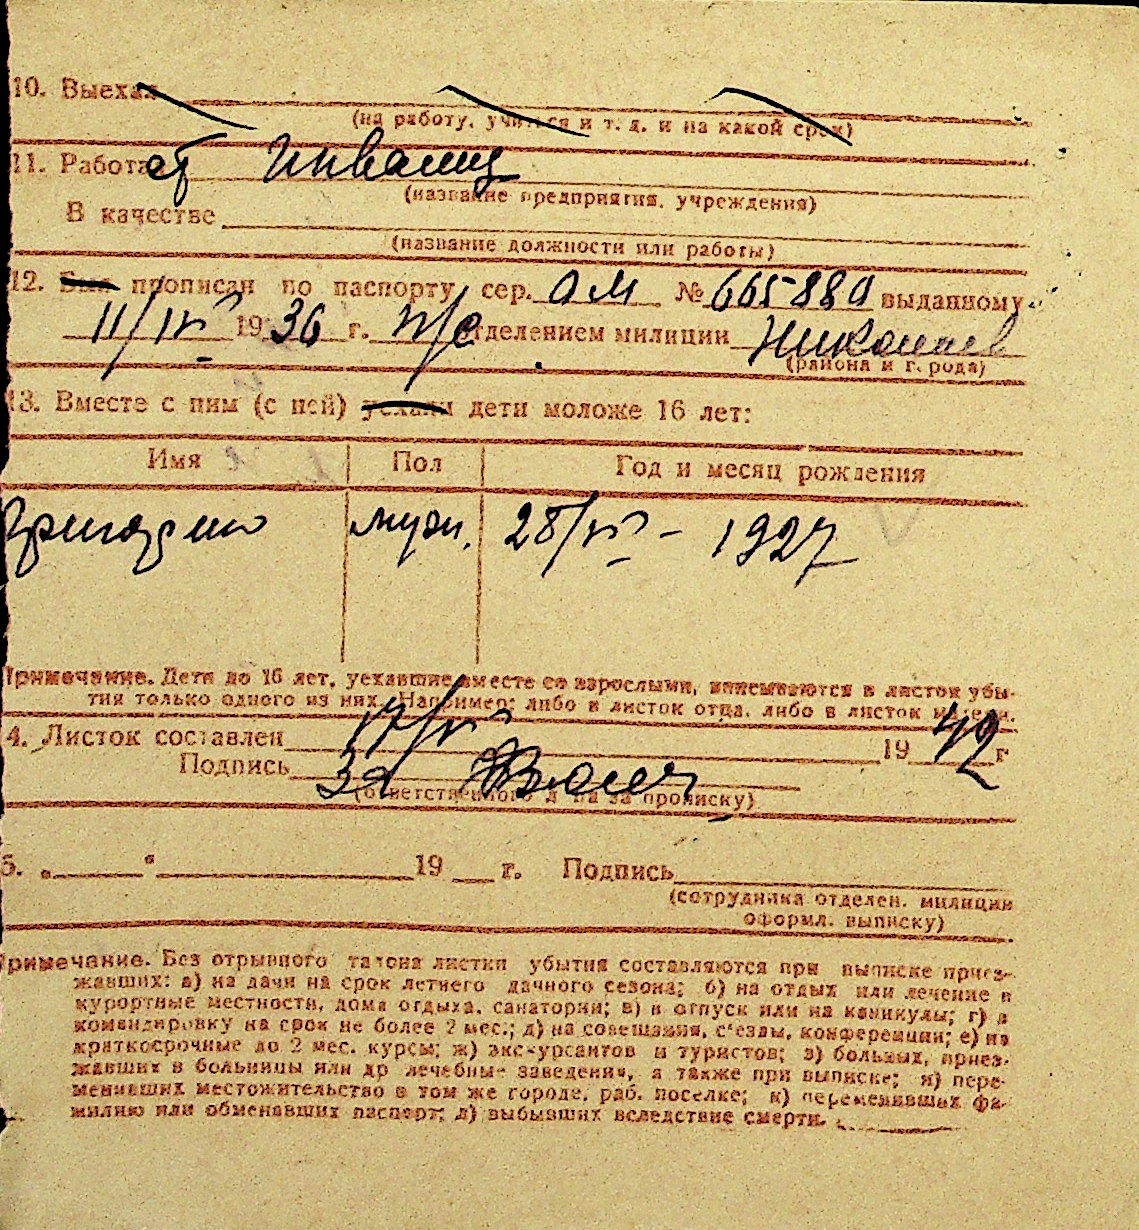 10. Выехал
(на работу, учиться и т. д. и на какой срок)
11. Работает инвалид
(название предприятия, учреждения)
В качестве
(название должности или работы)
12. Был прописан по паспорту сер. ОМ № 665880 выданному
11/IV 1936 г. н/о отделением милиции Николаев
(района и города)
13. Вместе с ним (с ней) уехали дети моложе 16 лет:
Имя Пол Год и месяц рождения
муж. 28/IV - 1927
Примечание. Дети до 16 лет, уехавшие вместе со взрослыми, вписываются в листок убы-
тия только одного из них. Например: либо в листок отца, либо в листок матери.
4. Листок составлен 17/IV 1942 г
Подпись За
(ответственного л-ца за прописку)
5. „ “ 19 г. Подпись
(сотрудника отделен. милиции
оформл. выписку)
Примечание. Без отрывного талона листки убытия составляются при выписке приез-
жавших: а) на дачи на срок летнего дачного сезона; б) на отдых или лечение в
курортные местности, дома отдыха, санатории; в) в отпуск или на каникулы; г) в
командировку на срок не более 2 мес.; д) на совещания, с'езды, конференции; е) на
краткосрочные до 2 мес. курсы; ж) экскурсантов и туристов; з) больных, приез-
жавших в больницы или др лечебные заведения, а также при выписке; и) пере-
менивших местожительство в том же городе, раб. поселке; к) переменивших фа-
милию или обменявших паспорт; л) выбывших вследствие смерти.